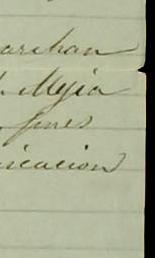 archan
Mejia
fines
icacion